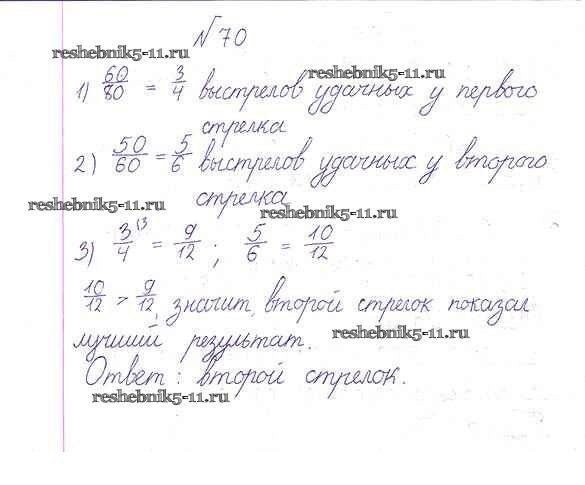 № 70
reshebnik5-11.ru
reshebnik5-11.ru
1) 60/80 = 3/4 выстрелов удачных у первого
стрелка
2) 50/60 = 5/6 выстрелов удачных у второго
стрелка
reshebnik5-11.ru
reshebnik5-11.ru
3) 3/4 ⁽³ = 9/12 ; 5/6 = 10/12
10/12 > 9/12, значит, второй стрелок показал
лучший результат.
reshebnik5-11.ru
Ответ: второй стрелок.
reshebnik5-11.ru